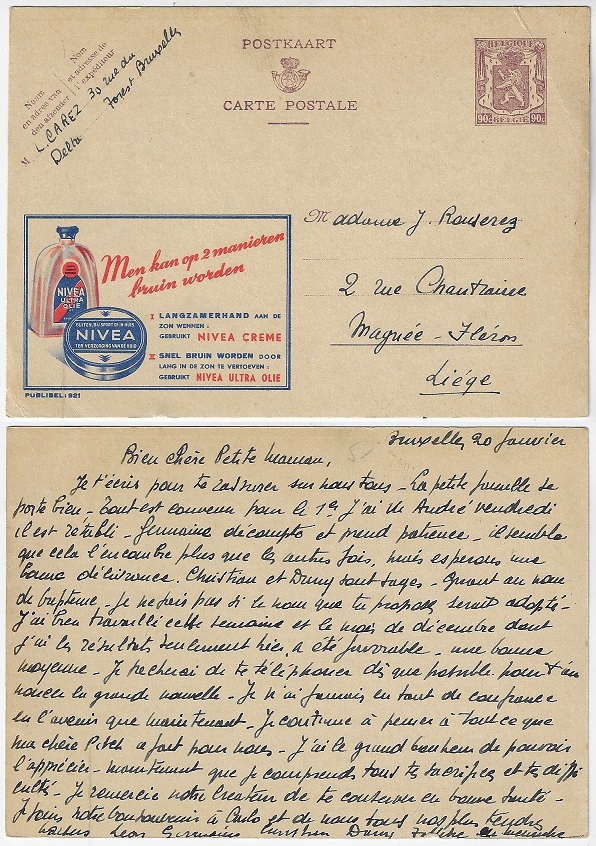 POSTKAART
CARTE POSTALE
BELGIQUE
90c 90c
BELGIË
Naam
en adres van
den afzender
Nom
et adresse de
l'expéditeur
M L. CAREZ 30 rue du
Delta Forest Bruxelles
Madame J. Rouserez
2 rue Chantraine
Magnée-Fléron
Liége
Men kan op 2 manieren
bruin worden
NIVEA
ULTRA
OLIE
BUITEN, BIJ SPORT OF IN HUIS
NIVEA
TER VERZORGING VAN DE HUID
I LANGZAMERHAND AAN DE
ZON WENNEN :
GEBRUIKT NIVEA CREME
II SNEL BRUIN WORDEN DOOR
LANG IN DE ZON TE VERTOEVEN :
GEBRUIKT NIVEA ULTRA OLIE
PUBLIBEL : 921
Bruxelles 20 janvier
Bien chère Petite Maman,
Je t'écris pour te rassurer sur nous tous - La petite famille se
porte bien - Tout est convenu pour le 1er j'ai vi André vendredi
il est rétabli - Germaine décompte et prend patience - il semble
que cela l'encombre plus que les autres fois, mais esperons une
bonne délivrance. Christian et Dany sont sages - Quant au nom
de bapteme - je ne sais pas si le nom que tu proposes serait adopté -
J'ai bien travaillé cette semaine et le mois de décembre dont
j'ai les résultats seulement hier, a été favorable - une bonne
moyenne - Je tacherai de te téléphoner dès que possible pour t'an
noncer la grande nouvelle - Je n'ai jamais eu tant de confiance
en l'avenir que maintenant - Je continue à penser à tout ce que
ma chère Pitch a fait pour nous - J'ai le grand bonheur de pouvoir
l'apprécier - maintenant que je comprends tous tes sacrifices et tes diffi
cultés - Je remercie notre Créateur de te conserver en bonne santé -
Je joins notre bonhomme à Carlo et de nous tous nos plus tendres
Leon Germaine Christian Dany